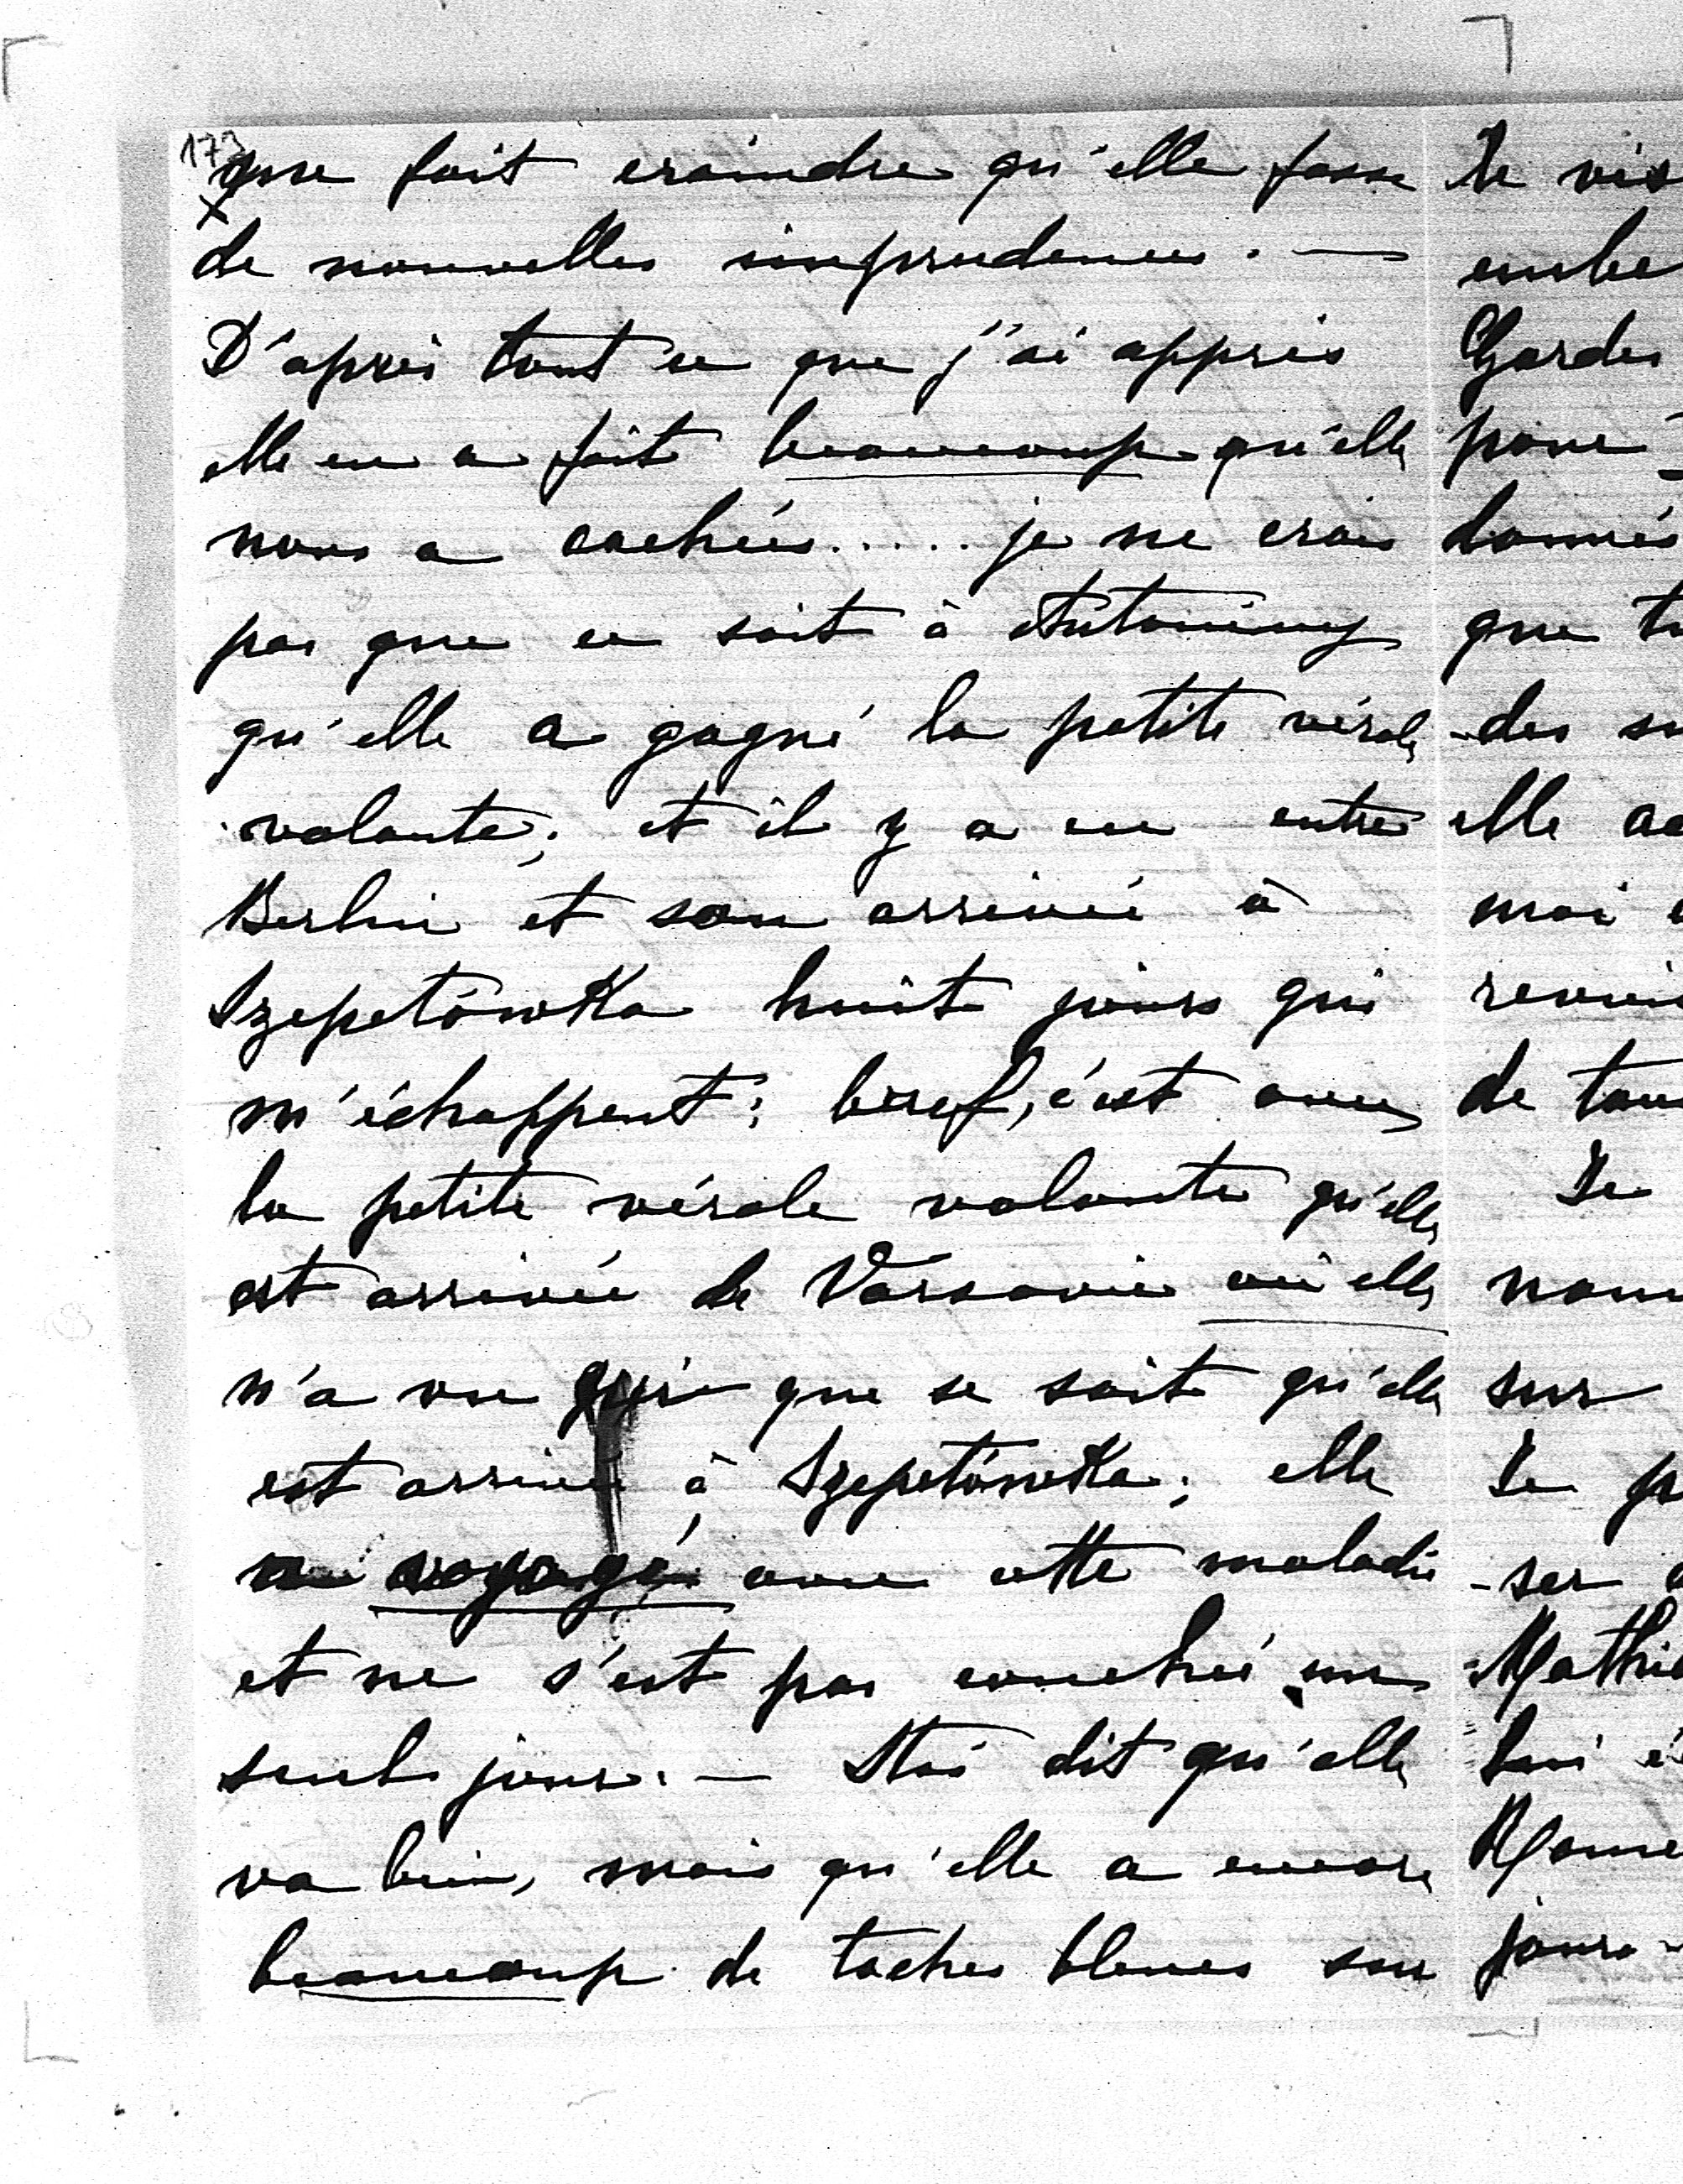 173
x
que fait craindre qu'elle fasse
de nouvelles imprudences. —
D'après tout ce que j'ai appris
elle en a fait beaucoup qu'elle
nous a cachées..... je ne crois
pas que ce soit à Antoniny
qu'elle a gagné la petite vérole
volante; et il y a eu entre
Berlin et son arrivée à
Szepetówka huit jours qui
m'échappent; bref, c'est avec
la petite vérole volante qu'elle
est arrivée de Varsovie où elle
n'a vu qui que se soit qu'elle
est arrivée à Szepetówka; elle
a voyagé avec cette maladie
et ne s'est pas couchée un
seul jour. — Staś dit qu'elle
va bien, mais qu'elle a encore
beaucoup de taches bleues sur
Je vis
Gardes
pour
données
que tu
-des
elle
moi
de
Je
sur
Je
-ser
Mathi
lui
jours